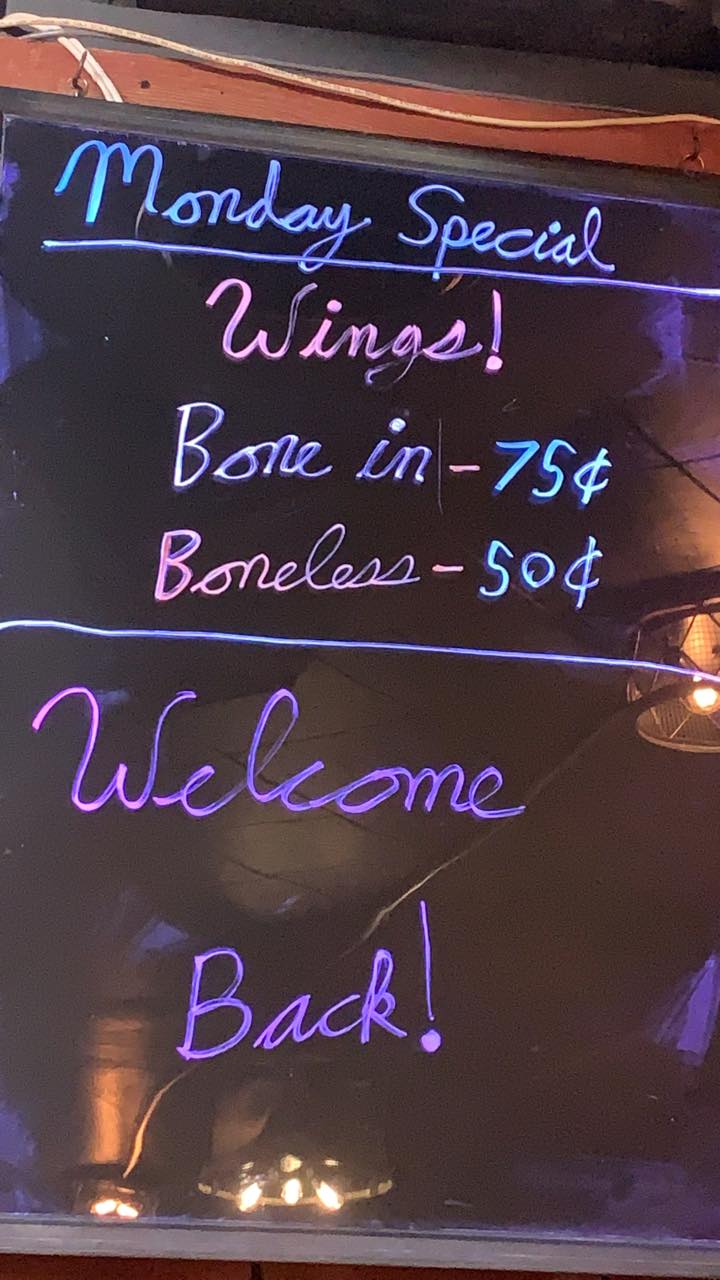 Monday Special
Wings!
Bone in - 75¢
Boneless - 50¢
Welcome
Back!